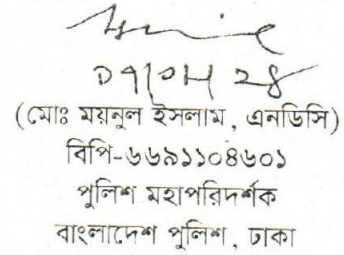 (মোঃ ময়নুল ইসলাম, এনডিসি)
বিপি-৬৬৯১১০৪৬০১
পুলিশ মহাপরিদর্শক
বাংলাদেশ পুলিশ, ঢাকা